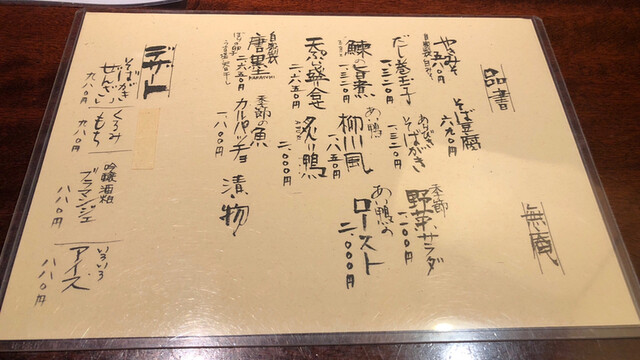 品書
無庵
やきみそ
五八〇円
自家製 甘みそ
そば豆腐
六九〇円
だし巻玉子
一、三二〇円
あらびき
そばがき
一、三二〇円
季節
野菜サラダ
一、二〇〇円
鰊の旨煮
一、三二〇円
あい鴨
柳川風
一、八五〇円
あい鴨の
ロースト
二、〇〇〇円
天ぷら盛合せ
二、六五〇円
炙り鴨
二、〇〇〇円
自家製
唐墨
KARASUMI
二、六五〇円
季節の魚
カルパッチョ
一、八〇〇円
漬け物
デザート
そばがき
ぜんざい
九八〇円
くるみ
もち
九八〇円
吟醸酒粕
ブラマンジェ
八八〇円
いろいろ
アイス
八八〇円